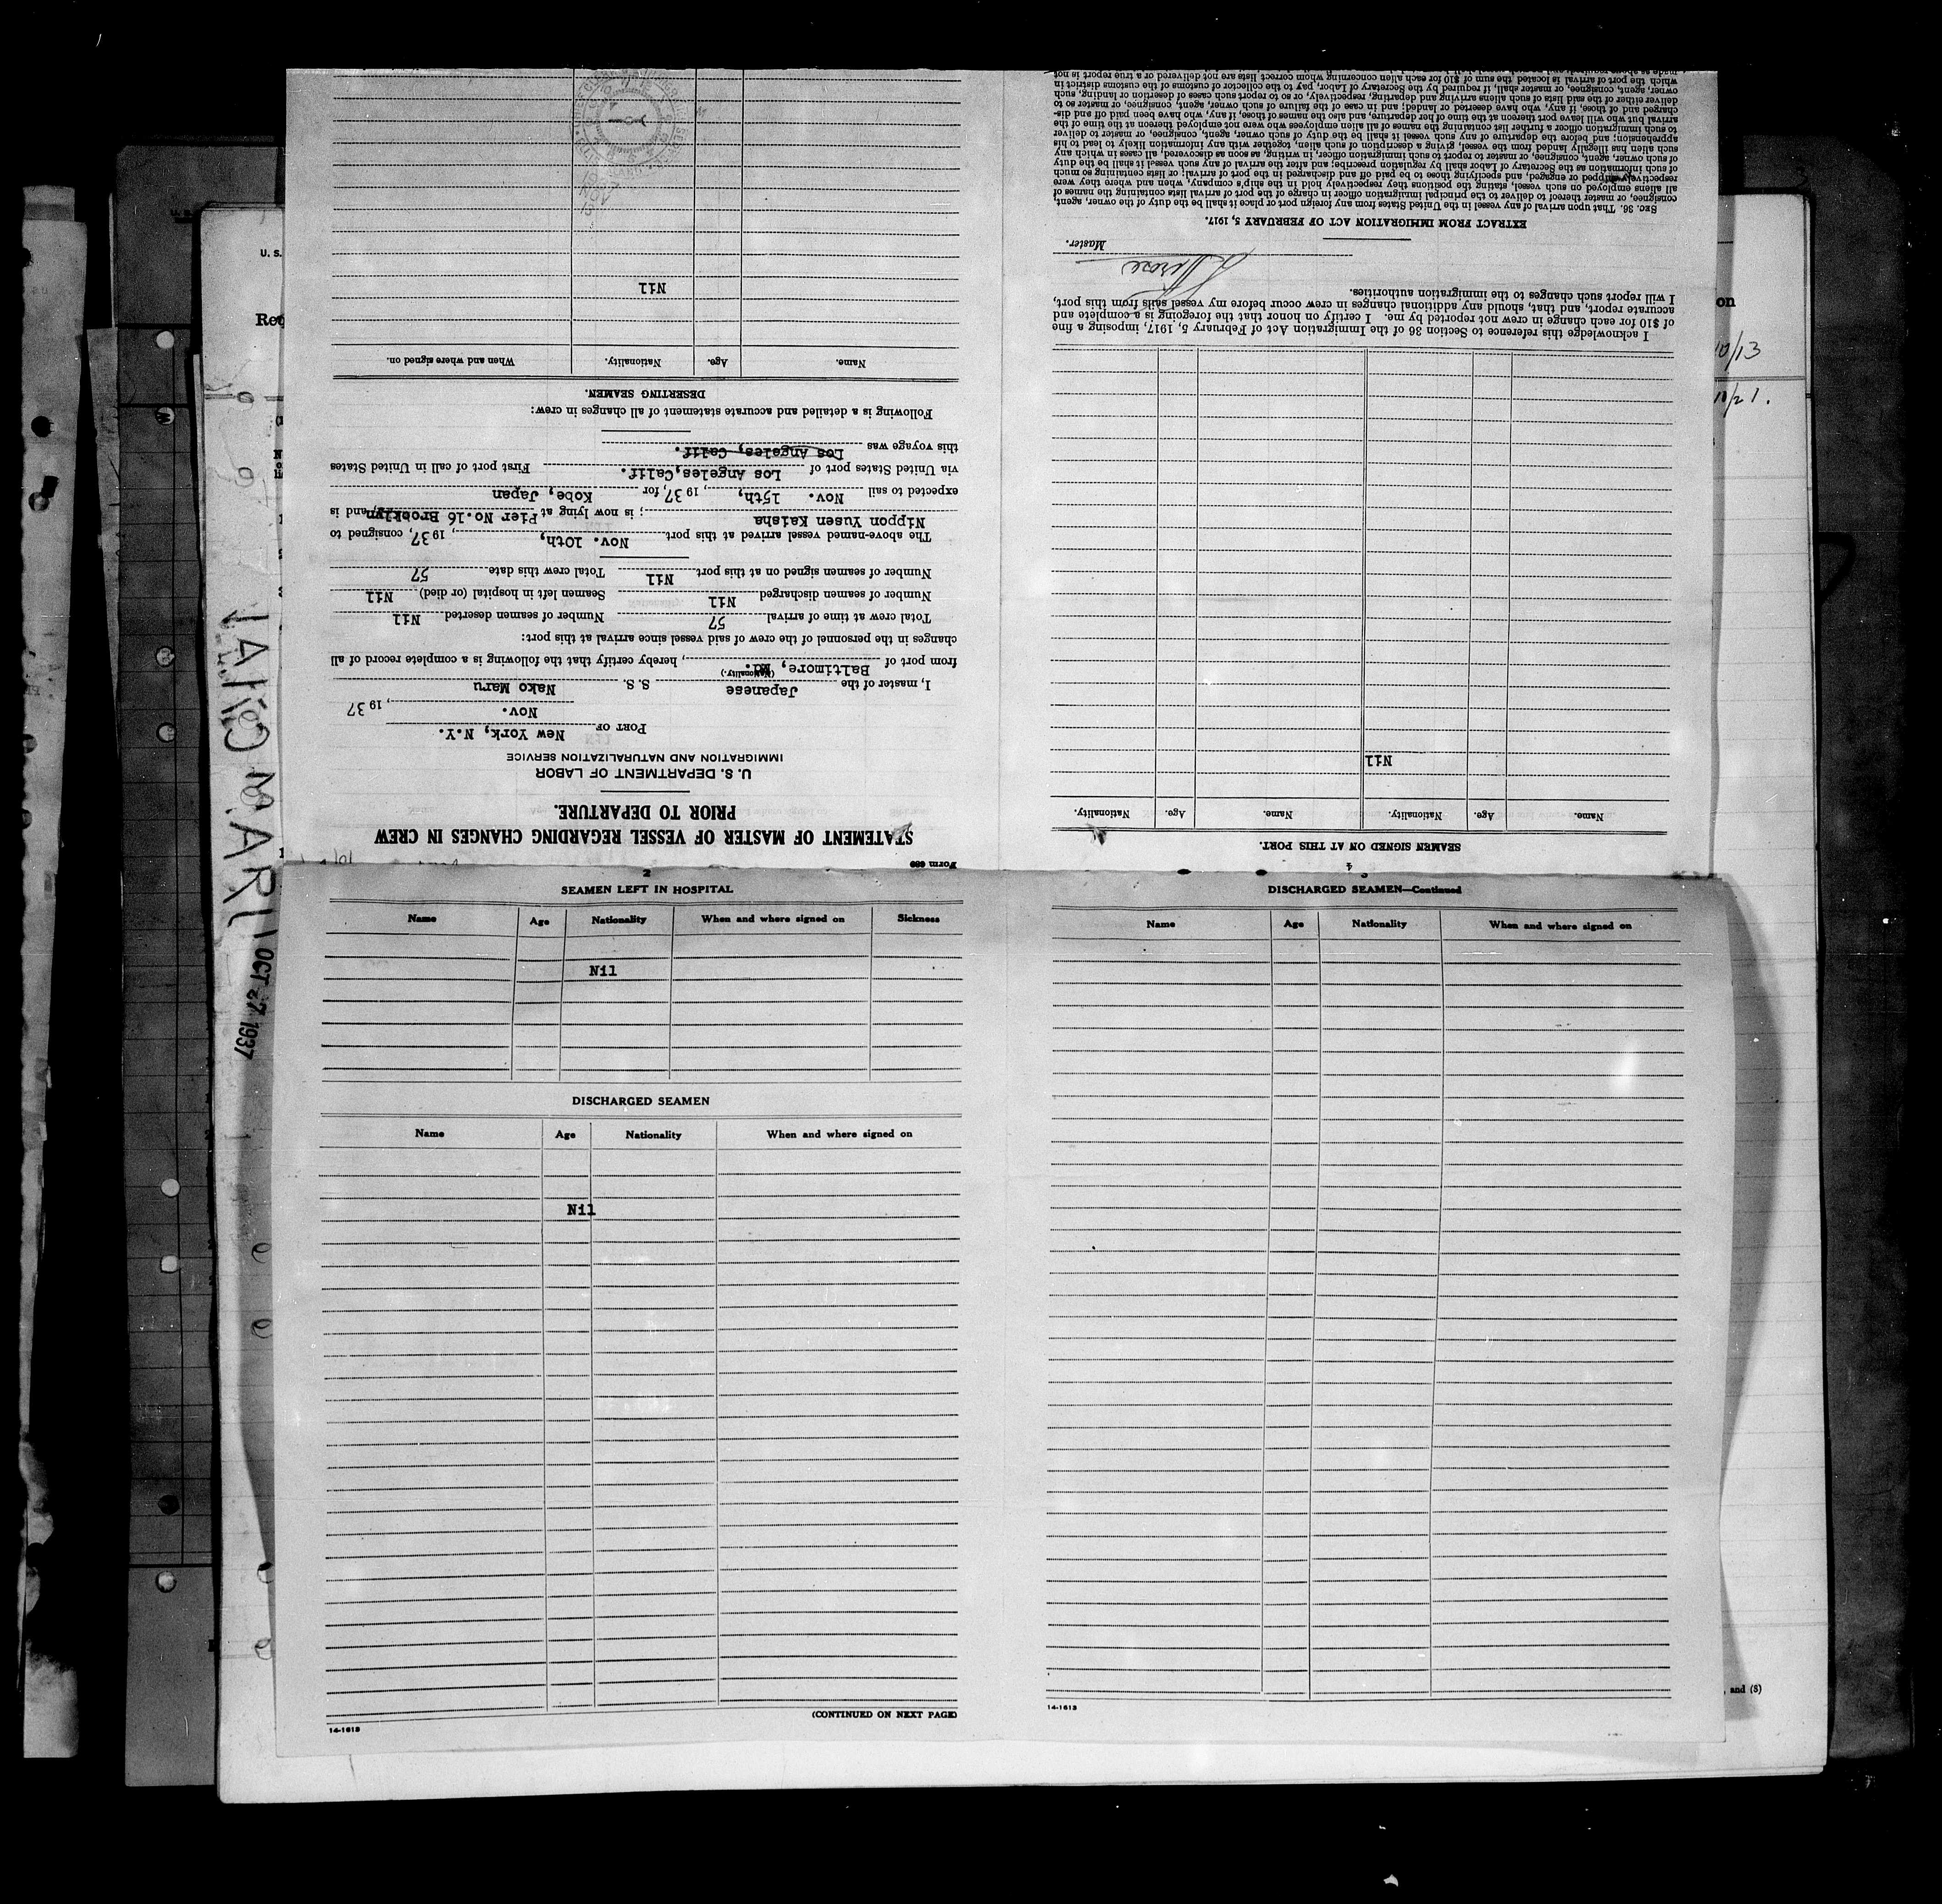 Form 689
STATEMENT OF MASTER OF VESSEL REGARDING CHANGES IN CREW
PRIOR TO DEPARTURE.
U. S. DEPARTMENT OF LABOR
IMMIGRATION AND NATURALIZATION SERVICE
PORT OF New York, N.Y.
Nov. , 1937
I, master of the Japanese S. S. Nako Maru
(Nationality.)
from port of Baltimore, Md. , hereby certify that the following is a complete record of all
changes in the personnel of the crew of said vessel since arrival at this port:
Total crew at time of arrival 57 Number of seamen deserted Nil
Number of seamen discharged Nil Seamen left in hospital (or died) Nil
Number of seamen signed on at this port Nil Total crew this date 57
The above-named vessel arrived at this port Nov. 10th, , 1937, consigned to
Nippon Yusen Kaisha ; is now lying at Pier No.16 Brooklyn, and is
expected to sail Nov. 15th, , 1937, for Kobe, Japan
via United States port of Los Angeles, Calif. First port of call in United States
this voyage was Los Angeles, Calif.
Following is a detailed and accurate statement of all changes in crew:
DESERTING SEAMEN.
Name. Age. Nationality. When and where signed on.
Nil
NOV
4
SEAMEN SIGNED ON AT THIS PORT.
Name. Age. Nationality. Name. Age. Nationality.
Nil
I acknowledge this reference to Section 36 of the Immigration Act of February 5, 1917, imposing a fine
of $10 for each change in crew not reported by me. I certify on honor that the foregoing is a complete and
accurate report, and that, should any additional changes in crew occur before my vessel sails from this port,
I will report such changes to the immigration authorities.
Master.
EXTRACT FROM IMMIGRATION ACT OF FEBRUARY 5, 1917.
SEC. 36. That upon arrival of any vessel in the United States from any foreign port or place it shall be the duty of the owner, agent,
consignee, or master thereof to deliver to the principal immigration officer in charge of the port of arrival lists containing the names of
all aliens employed on such vessel, stating the positions they respectively hold in the ship's company, when and where they were
respectively shipped or engaged, and specifying those to be paid off and discharged in the port of arrival; or lists containing so much
of such information as the Secretary of Labor shall by regulation prescribe; and after the arrival of any such vessel it shall be the duty
of such owner, agent, consignee, or master to report to such immigration officer, in writing, as soon as discovered, all cases in which any
such alien has illegally landed from the vessel, giving a description of such alien, together with any information likely to lead to his
apprehension; and before the departure of any such vessel it shall be the duty of such owner, agent, consignee, or master to deliver
to such immigration officer a further list containing the names of all alien employees who were not employed thereon at the time of the
arrival but who will leave port thereon at the time of her departure, and also the names of those, if any, who have been paid off and dis-
charged and of those, if any, who have deserted or landed; and in case of the failure of such owner, agent, consignee, or master so to
deliver either of the said lists of such aliens arriving and departing, respectively, or so to report such cases of desertion or landing, such
owner, agent, consignee, or master shall, if required by the Secretary of Labor, pay to the collector of customs of the customs district in
which the port of arrival is located the sum of $10 for each alien concerning whom correct lists are not delivered or a true report is not
2
SEAMEN LEFT IN HOSPITAL
Name Age Nationality When and where signed on Sickness
Nil
DISCHARGED SEAMEN
Name Age Nationality When and where signed on
Nil
(CONTINUED ON NEXT PAGE)
14-1613
3
DISCHARGED SEAMEN—Continued
Name Age Nationality When and where signed on
14-1613
OCT 27 1937
U. S.
10/13
10/21.
, and (8)